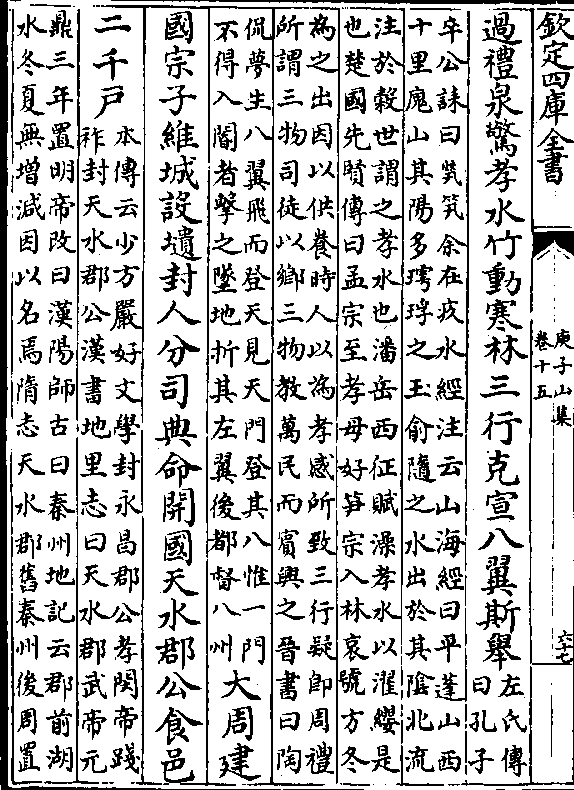 欽定四庫全書
庚子山集
卷十五
六十七
過禮泉驚孝水竹動寒林三行克宣八翼斯舉
左氏傳
曰孔子
卒公誄曰煢煢余在疚水經注云山海經曰平蓬山西
十里廆山其陽多㻬琈之玉俞隨之水出於其陰北流
注於榖世謂之孝水也潘岳西征賦澡孝水以濯纓是
也楚國先賢傳曰孟宗至孝母好笋宗入林哀號方冬
為之出因以供養時人以為孝感所致三行疑即周禮
所謂三物司徒以鄉三物教萬民而賓興之晉書曰陶
侃夢生八翼飛而登天見天門登其八惟一門
不得入閽者擊之墜地折其左翼後都督八州
大周建
國宗子維城設壝封人分司典命開國天水郡公食邑
二千戶
本傳云少方嚴好文學封永昌郡公孝閔帝踐
祚封天水郡公漢書地里志曰天水郡武帝元
鼎三年置明帝改曰漢陽師古曰秦州地記云郡前湖
水冬夏無增減因以名焉隋志天水郡舊秦州後周置